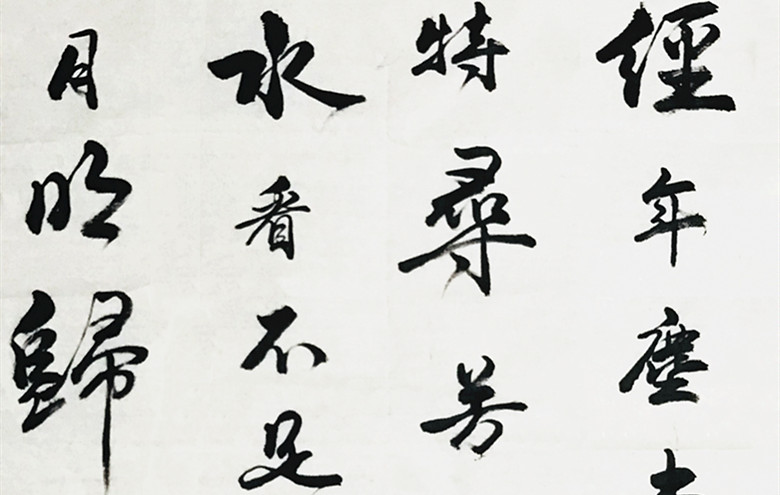 經年塵土
特尋芳
水看不足
月明歸